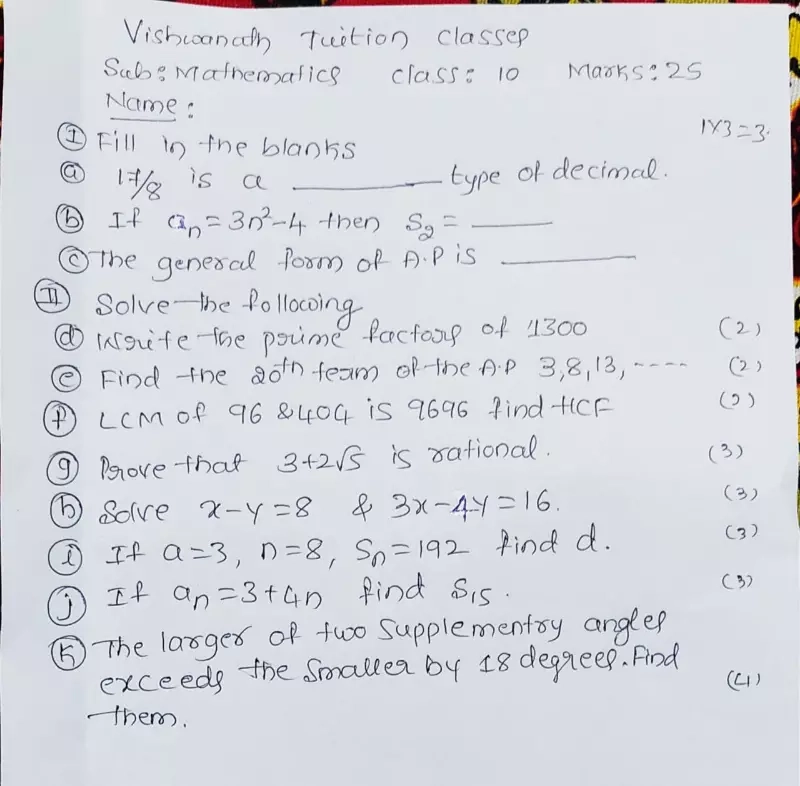 Vishwanath Tuition Classes
Sub: Mathematics class: 10 Marks: 25
Name:
I Fill in the blanks 1x3=3.
a 17/8 is a ______ type of decimal.
b If an=3n²-4 then S2 = ______
c The general form of A.P is ______
II Solve the following
d Write the prime factors of 1300 (2)
e Find the 20th team of the A.P 3,8,13,---- (2)
f LCM of 96 & 404 is 9696 find HCF (2)
g Prove that 3+2√5 is rational. (3)
h Solve x-y=8 & 3x-4y=16. (3)
i If a=3, n=8, Sn=192 find d. (3)
j If an=3+4n find S15. (3)
k The larger of two supplementry angles
exceeds the smaller by 18 degrees. Find
them. (4)